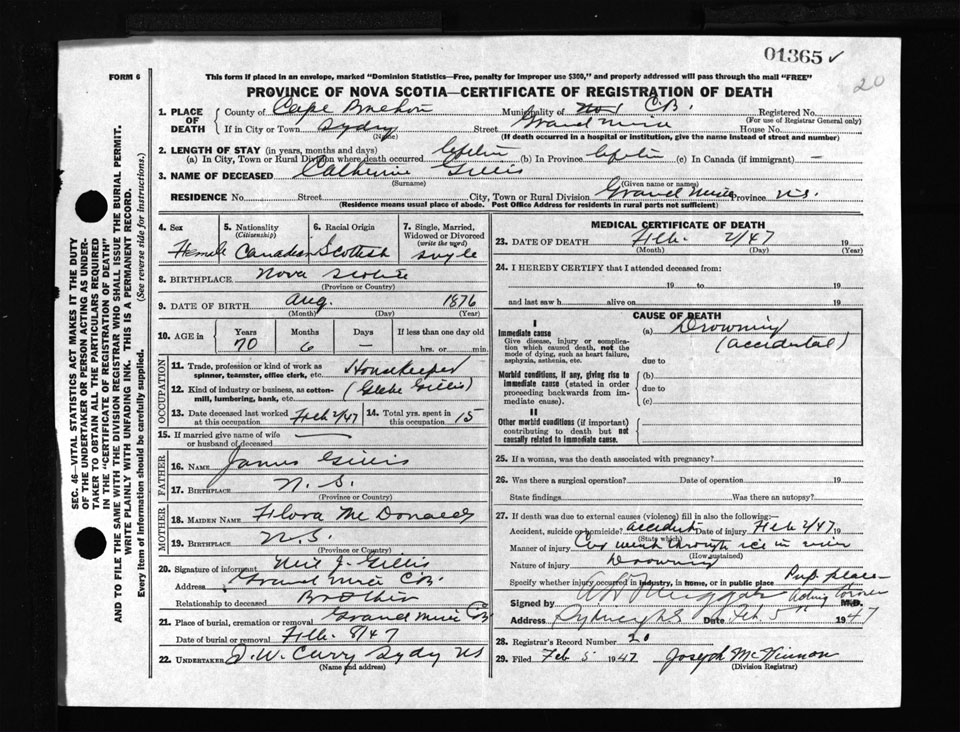 01365 ✓
20
FORM 6
This form if placed in an envelope, marked "Dominion Statistics—Free, penalty for improper use $300," and properly addressed will pass through the mail "FREE"
PROVINCE OF NOVA SCOTIA—CERTIFICATE OF REGISTRATION OF DEATH
SEC. 46—VITAL STATISTICS ACT MAKES IT THE DUTY
OF THE UNDERTAKER OR PERSON ACTING AS UNDER-
TAKER TO OBTAIN ALL THE PARTICULARS REQUIRED
IN THE "CERTIFICATE OF REGISTRATION OF DEATH"
AND TO FILE THE SAME WITH THE DIVISION REGISTRAR WHO SHALL ISSUE THE BURIAL PERMIT.
WRITE PLAINLY WITH UNFADING INK. THIS IS A PERMANENT RECORD.
Every item of information should be carefully supplied. (See reverse side for instructions.)
1. PLACE OF DEATH County of Cape Breton Municipality of C B. Registered No.
(For use of Registrar General only)
If in City or Town Sydny Street Grand Mira House No.
(Name) (If death occurred in a hospital or institution, give the name instead of street and number)
2. LENGTH OF STAY (in years, months and days)
(a) In City, Town or Rural Division where death occurred Lifetim (b) In Province Lifetim (c) In Canada (if immigrant) —
3. NAME OF DECEASED Catherine Gillis
(Surname) (Given name or names)
RESIDENCE No. Street City, Town or Rural Division Grand Mira Province N.S.
(Residence means usual place of abode. Post Office Address for residents in rural parts not sufficient)
4. Sex 5. Nationality (Citizenship) 6. Racial Origin 7. Single, Married, Widowed or Divorced (write the word)
Female Canadian Scottish single
8. BIRTHPLACE Nova Scotia
(Province or Country)
9. DATE OF BIRTH Aug. 1876
(Month) (Day) (Year)
10. AGE in Years Months Days If less than one day old
70 6 — hrs. or min.
OCCUPATION
11. Trade, profession or kind of work as spinner, teamster, office clerk, etc. Housekeeper
12. Kind of industry or business, as cotton-mill, lumbering, bank, etc. (Glebe Gillis)
13. Date deceased last worked Feb 2/47 14. Total yrs. spent in 15
15. If married give name of wife or husband of deceased —
FATHER
16. NAME James Gillis
17. BIRTHPLACE N. S.
(Province or Country)
MOTHER
18. MAIDEN NAME Flora McDonald
19. BIRTHPLACE N.S.
(Province or Country)
20. Signature of informant Neil J. Gillis
Address Grand Mira C.B.
Relationship to deceased Brother
21. Place of burial, cremation or removal Grand Mira C B
Date of burial or removal Feb. 5/47
22. UNDERTAKER D. W. Curry Sydy NS
(Name and address)
MEDICAL CERTIFICATE OF DEATH
23. DATE OF DEATH Feb. 2/47 19
(Month) (Day) (Year)
24. I HEREBY CERTIFY that I attended deceased from:
19 to 19
and last saw h alive on 19
CAUSE OF DEATH
I
Immediate cause (a) Drowning
Give disease, injury or complication which caused death, not the mode of dying, such as heart failure, asphyxia, asthenia, etc. (accidental)
due to
Morbid conditions, if any, giving rise to immediate cause (stated in order proceeding backwards from immediate cause). (b)
due to
(c)
II
Other morbid conditions (if important) contributing to death but not causally related to immediate cause.
25. If a woman, was the death associated with pregnancy?
26. Was there a surgical operation? Date of operation 19
State findings Was there an autopsy?
27. If death was due to external causes (violence) fill in also the following:—
Accident, suicide or homicide? accident Date of injury Feb 2/47 19
(State which)
Manner of injury went through ice in river
(How sustained)
Nature of injury Drowning
Specify whether injury occurred in industry, in home, or in public place Pub. place
Signed by Acting Coroner M.D.
Address Sydney N S Date Feb 5th 1947
28. Registrar's Record Number 20
29. Filed Feb 5 1947 Joseph McKinnon
(Division Registrar)